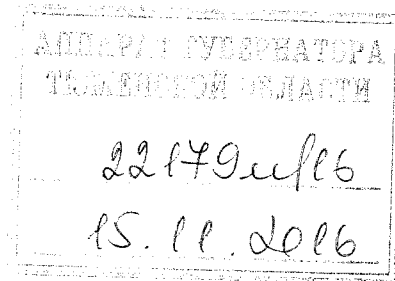 АППАРАТ ГУБЕРНАТОРА
ТЮМЕНСКОЙ ОБЛАСТИ
22179и/16
15.11.2016